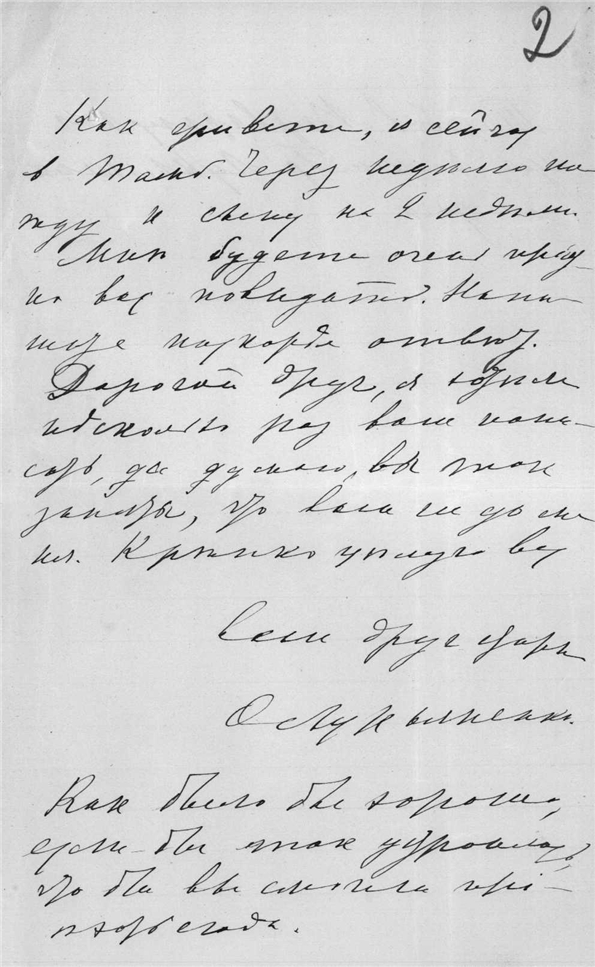 2
Как приеме, я сейчас
в Томб. Через неделю по
жду и съежу на 2 недели.
Мне будете очень прият
но вас повидать. Напи
шите поскорее ответ.
Дорогой друг, я хотела
несколько раз вам напи-
сать, да думаю, вы так
заняты, что вам не до ме
ня. Крепко целую вас
Ваш друг
О Лукьяненко.
Как было бы хорошо,
если-бы так устроилось,
что бы вы смогли прі-
ехать сюда.